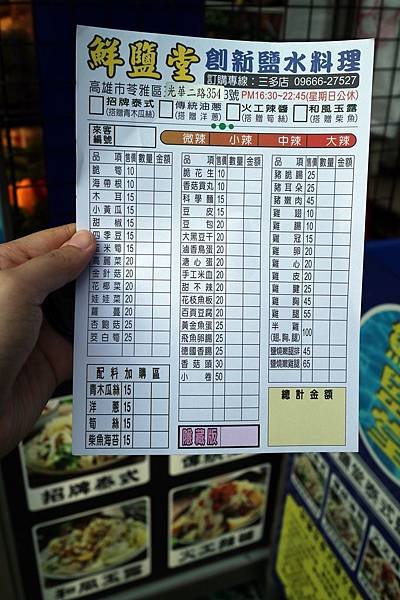 鮮鹽堂 創新鹽水料理
訂購專線：三多店 09666-27527
高雄市苓雅區光華二路354之3號 PM16:30~22:45(星期日公休)
招牌泰式 傳統油蔥 火工辣醬 和風玉露
(搭贈青木瓜絲) (搭贈洋蔥) (搭贈筍絲) (搭贈柴魚)
來客編號 微辣 小辣 中辣 大辣
品項 售價 數量 金額
脆筍 10
海帶根 10
木耳 10
小黃瓜 15
甜椒 15
四季豆 15
玉米筍 15
高麗菜 20
金針菇 20
花椰菜 20
娃娃菜 20
蘿蔔 20
杏鮑菇 25
茭白筍 25
配料加購區
青木瓜絲 15
洋蔥 15
筍絲 15
柴魚海苔 15
品項 售價 數量 金額
脆花生 10
香菇貢丸 10
科學麵 15
豆皮 15
豆包 20
大黑豆干 20
滷香鳥蛋 20
溏心蛋 20
手工米血 20
甜不辣 20
花枝魚板 20
百頁豆腐 20
黃金魚蛋 25
飛魚卵腸 25
德國香腸 25
香菇頭 30
小卷 50
隱藏版
品項 售價 數量 金額
豬脆腸 25
豬耳朵 25
豬嫩肉 45
雞翅 10
雞腸 10
雞冠 15
雞卵 20
雞心 20
雞皮 20
雞腱 25
雞胸 45
雞腿 55
半雞 (翅.胸.腿) 100
鹽燒嫩腿排 65
鹽燒嫩雞腿 65
總計金額
招牌泰式
和風玉露
火工辣醬